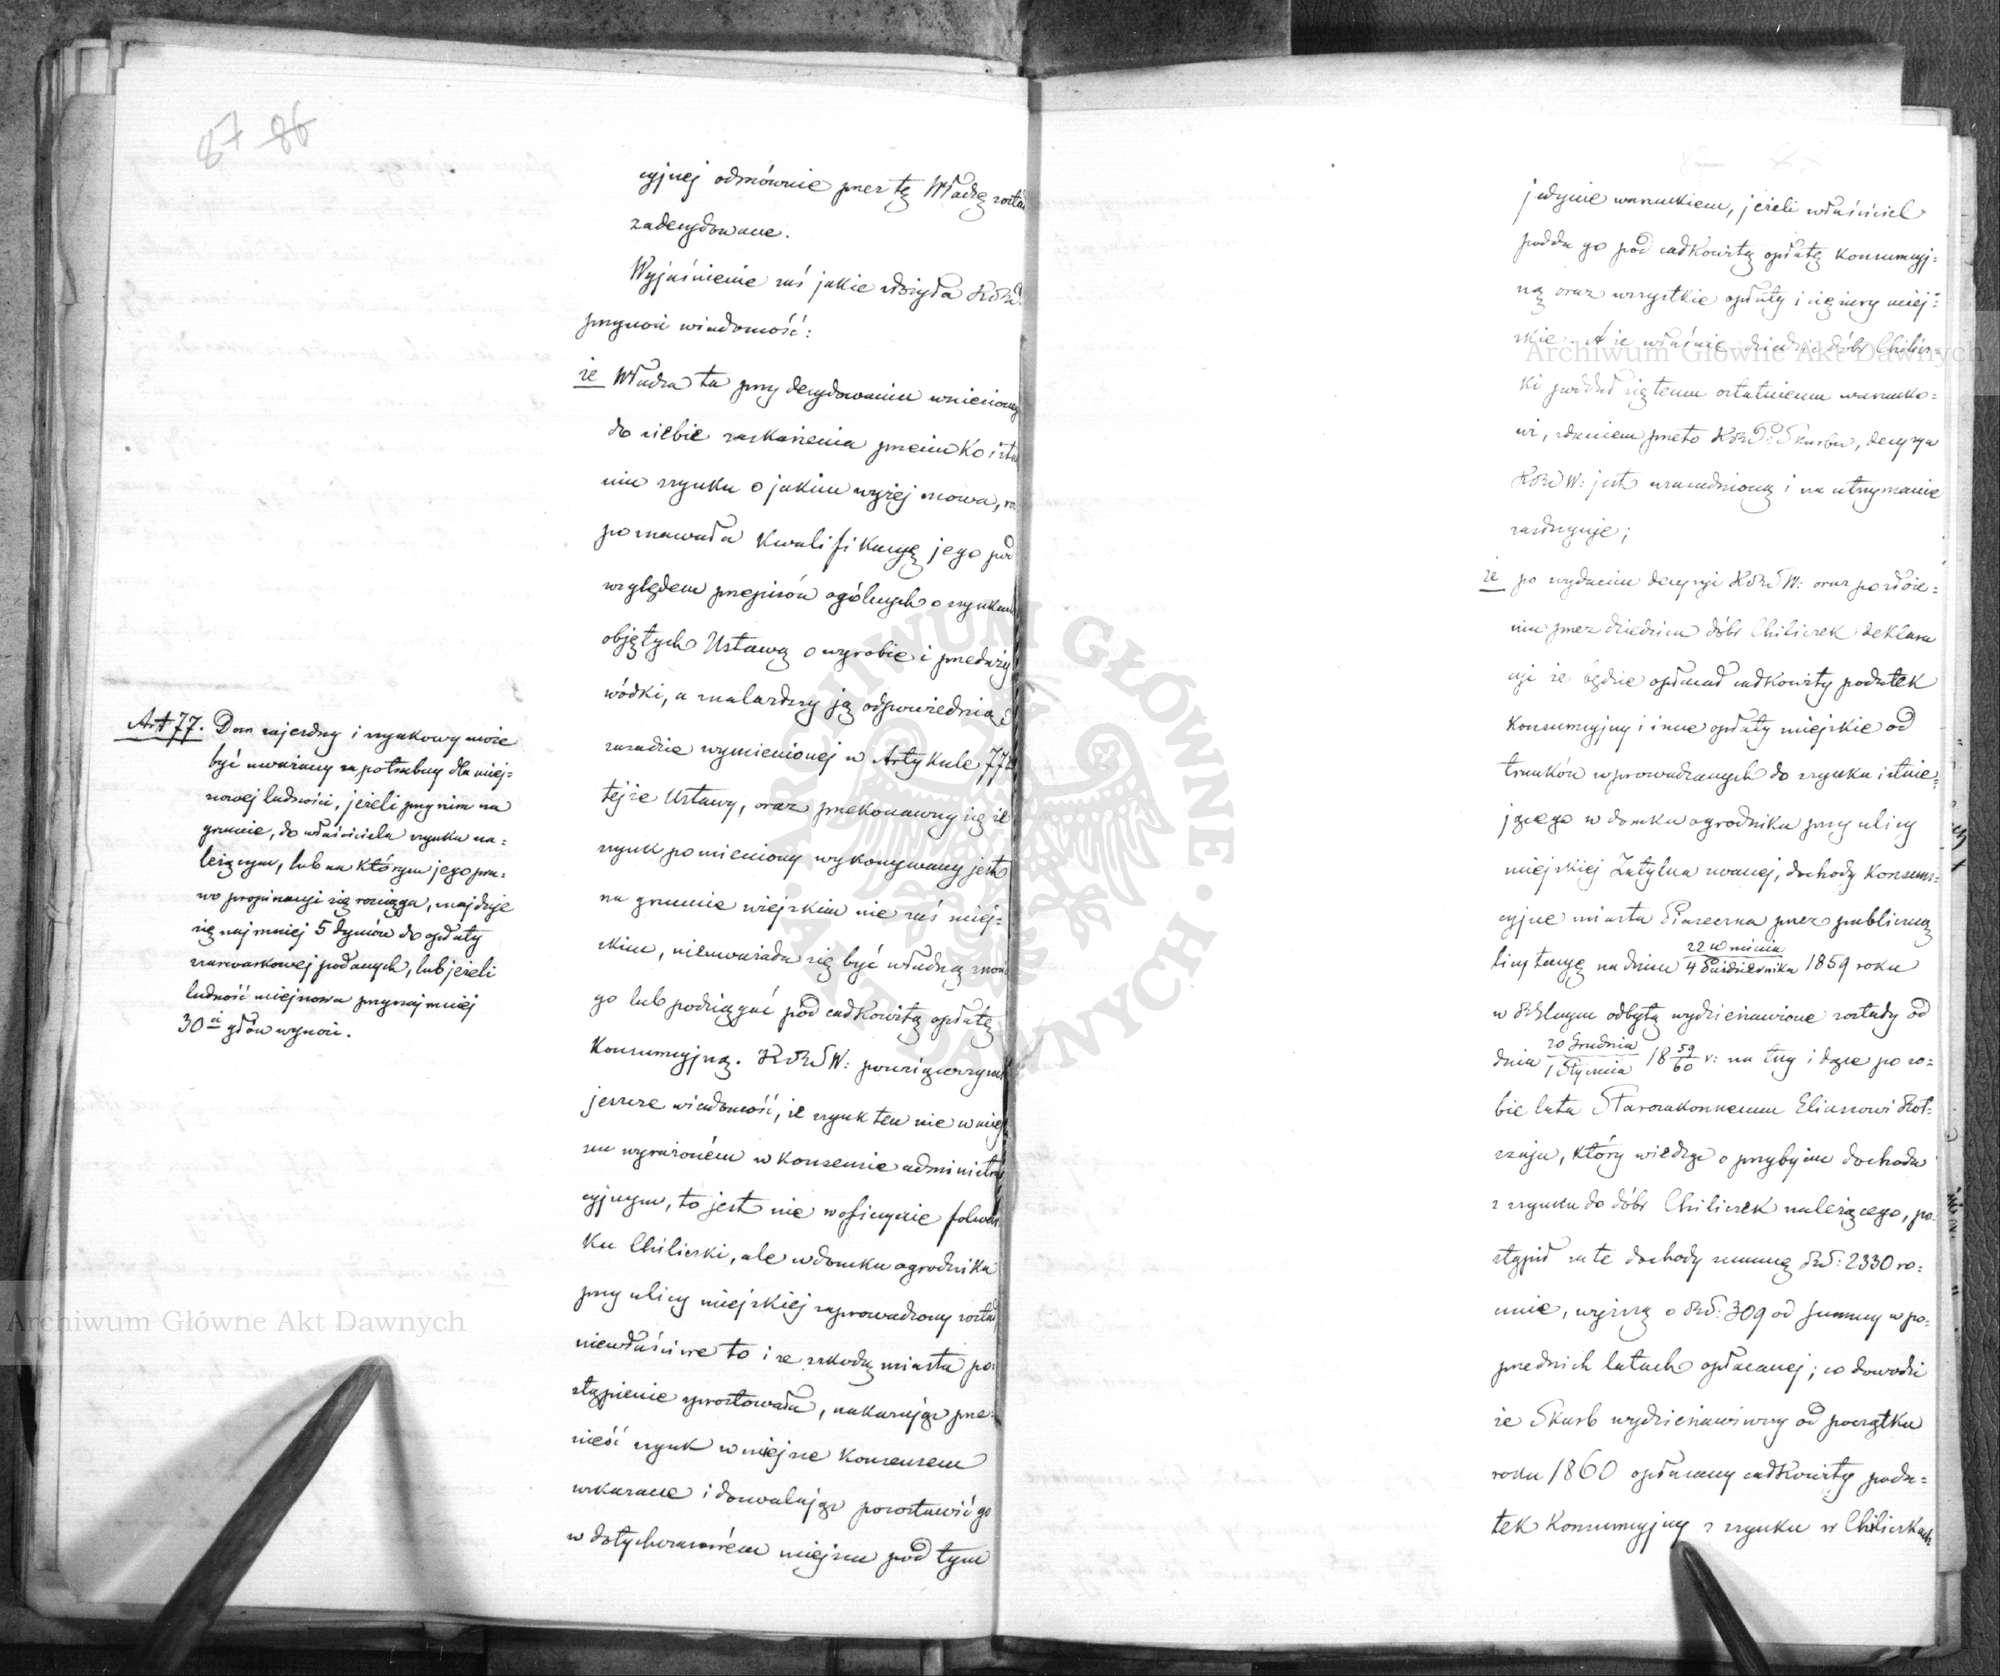 87 86
cyjnej odmównie przez tę Władzę został
zadecydowane.
Wyjaśnienie zaś jakie złożyła
przynosi wiadomość:
że Władza ta przy decydowaniu wniesionego
do siebie zaskarżenia przeciwko istnie
niu szynku o jakim wyżej mowa, roz
poznawała kwalifikacyę jego pod
względem przepisów ogólnych o szynkach
objętych Ustawą o wyrobie i przedaży
wódki, a znalazłszy ją odpowiednią
zasadzie wymienionej w Artykule 77
tejże Ustawy, oraz przekonawszy się że
szynk pomieniony wykonywany jest
na gruncie wiejskim nie zaś miej=
skim, nieuważała się być władną znieść
go lub podciągać pod całkowitą opłatę
Konsumcyjną. powziąwszy
jeszcze wiadomość, że szynk ten nie w miej
scu wyrażoném w konsensie administra
cyjnym, to jest nie w oficynie folwar
ku Chiliczki, ale w domku ogrodnika
przy ulicy miejskiej zaprowadzony został
niewłaściwe to i ze szkodą miasta po=
stąpienie sprostowała, nakazując prze=
nieść szynk w miejsce Konsensem
wskazane i dozwalając pozostawić go
w dotychczasowém miejscu pod tym
Art 77. Dom zajezdny i szynkowy może
być uważany za potrzebny dla miej=
scowej ludności, jeżeli przy nim na
gruncie, do właściciela szynku na=
leżącym, lub na którym jego pra=
wo propinacyi się rozciąga, znajduje
się najmniej 5 dymów do opłaty
szarwarkowej podanych, lub jeżeli
ludność miejscowa przynajmniej
30 głów wynosi.
jedynie warunkiem, jeżeli właściciel
podda go pod całkowitą opłatę konsumcyj=
ną oraz wszystkie opłaty i ciężary miej=
skie. A że właśnie dziedzic dóbr Chilicz=
ki poddał się temu ostatniemu warunko=
wi, zdaniem przeto Skarbu, decyzya
W: jest uzasadnioną i na utrzymanie
zasługuje;
że po wydaniu decyzyi W: oraz po złoże=
niu przez dziedzica dóbr Chiliczek deklara
cyi że będzie opłacał całkowity podatek
Konsumcyjny i inne opłaty miejskie od
trunków wprowadzanych do szynku istnie=
jącego w domku ogrodnika przy ulicy
miejskiej Zatylna zwanej, dochody Konsum=
cyjne miasta Piaseczna przez publiczną
licytacyę na dniu 22 Września / 4 Października 1859 roku
w odbytą wydzierżawione zostały od
dnia 20 Grudnia / 1 Stycznia 18 59/60 r: na trzy i dące po so=
bie lata Starozakonnemu Eliaszowi Rot=
sztajn, który wiedząc o przybyciu dochodu
z szynku do dóbr Chiliczek należącego, po=
stąpił za te dochody summę 2330 ro=
cznie, wyższą o 309 od summy w po=
przednich latach opłacanej; co dowodzi
że Skarb wydzierżawiwszy od początku
roku 1860 opłacany całkowity poda=
tek Konsumcyjny z szynku w Chiliczkach
Archiwum Główne Akt Dawnych
Archiwum Główne Akt Dawnych
ARCHIWUM GŁÓWNE · AKT DAWNYCH ·